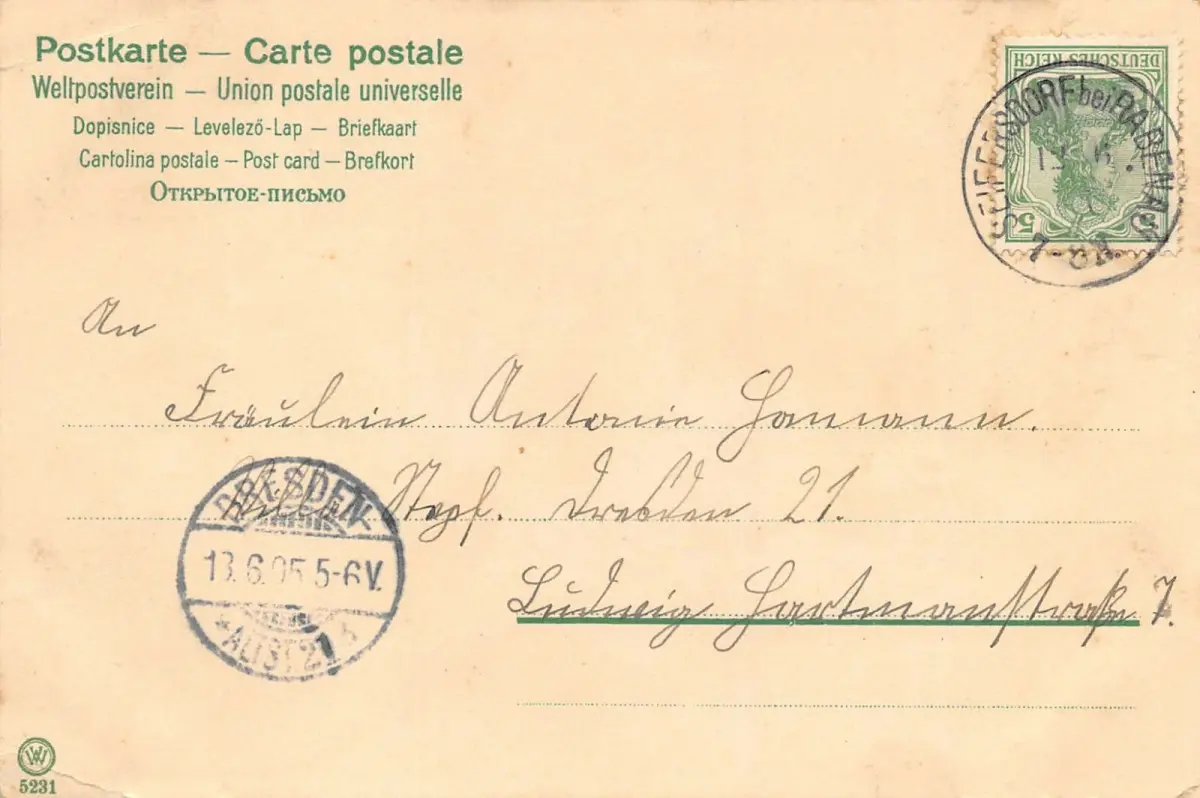 Postkarte — Carte postale
Weltpostverein — Union postale universelle
Dopisnice — Levelező-Lap — Briefkaart
Cartolina postale — Post card — Brefkort
Открытое-письмо
DEUTSCHES REICH
5 5
SEIFERSDORF bei RABENAU
7-8N.
An
Fräulein Antonie Hamann.
Stepf. Dresden 21.
Ludwig Hartmanstraße 7.
DRESDEN
13.6.05.5-6V.
*ALTST.21
W
5231